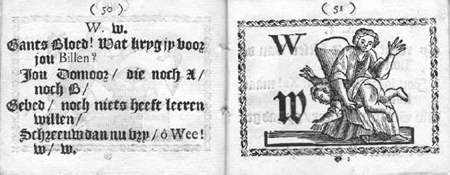 ( 50 )
W. w.
Gants Bloed! Wat krygjy voor
jou Billen?
Jou Domoor / die noch A /
noch B /
Gebed / noch niets heeft leeren
willen /
Schreeuw dan nu vry / ô Wee!
w / w.
( 51 )
W
W